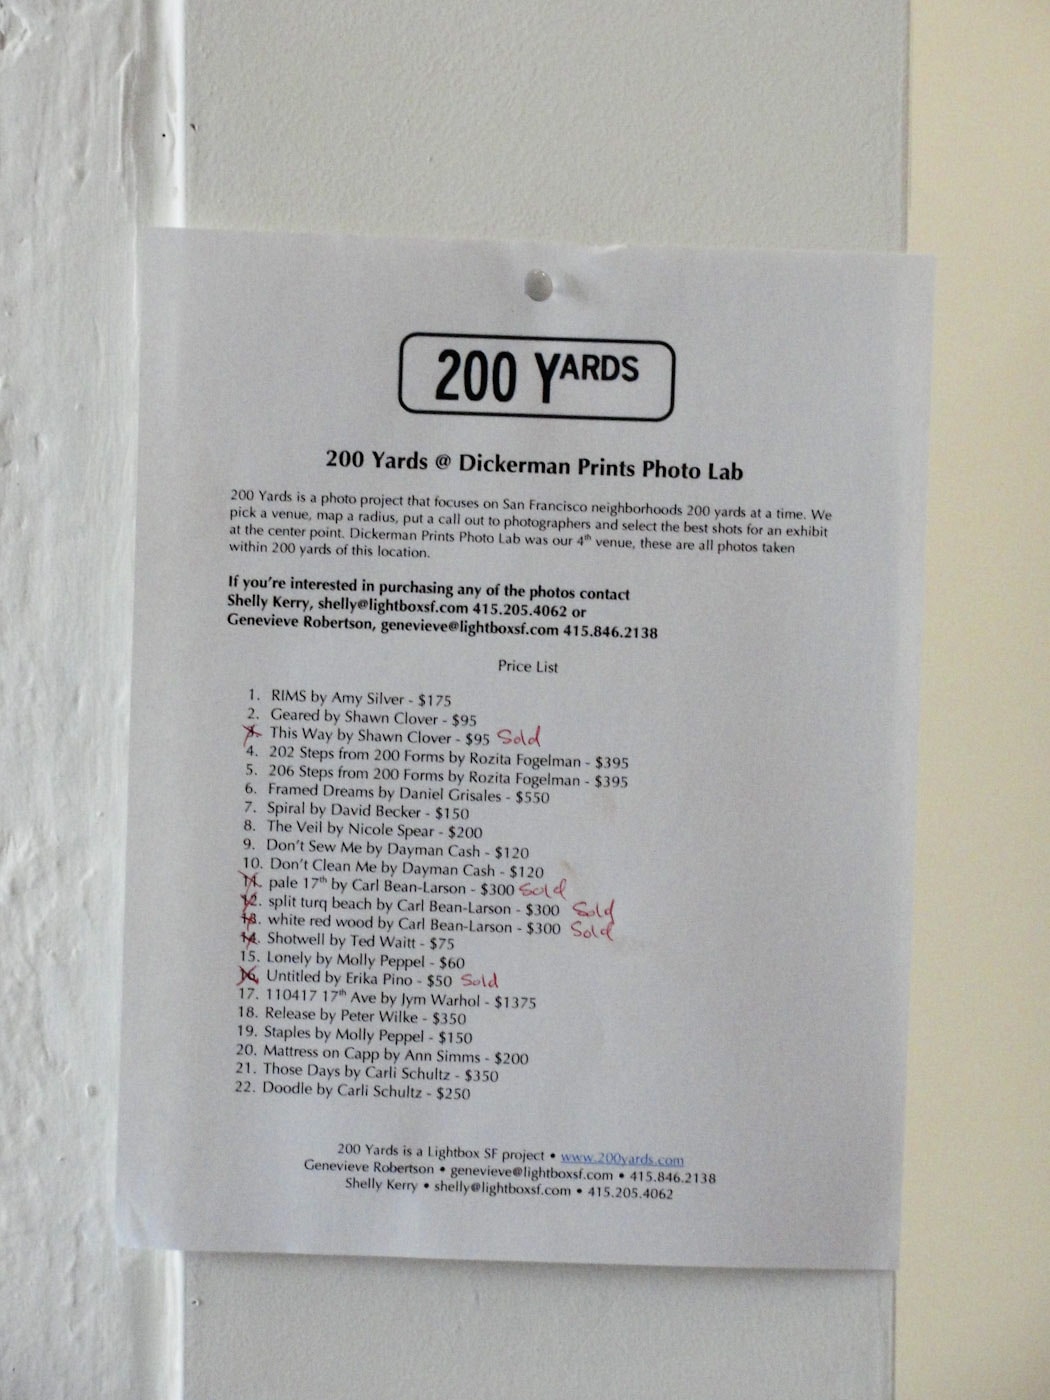 200 YARDS
200 Yards @ Dickerman Prints Photo Lab
200 Yards is a photo project that focuses on San Francisco neighborhoods 200 yards at a time. We
pick a venue, map a radius, put a call out to photographers and select the best shots for an exhibit
at the center point. Dickerman Prints Photo Lab was our 4th venue, these are all photos taken
within 200 yards of this location.
If you're interested in purchasing any of the photos contact
Shelly Kerry, shelly@lightboxsf.com 415.205.4062 or
Genevieve Robertson, genevieve@lightboxsf.com 415.846.2138
Price List
1. RIMS by Amy Silver - $175
2. Geared by Shawn Clover - $95
3. This Way by Shawn Clover - $95 Sold
4. 202 Steps from 200 Forms by Rozita Fogelman - $395
5. 206 Steps from 200 Forms by Rozita Fogelman - $395
6. Framed Dreams by Daniel Grisales - $550
7. Spiral by David Becker - $150
8. The Veil by Nicole Spear - $200
9. Don't Sew Me by Dayman Cash - $120
10. Don't Clean Me by Dayman Cash - $120
11. pale 17th by Carl Bean-Larson - $300 Sold
12. split turq beach by Carl Bean-Larson - $300 Sold
13. white red wood by Carl Bean-Larson - $300 Sold
14. Shotwell by Ted Waitt - $75
15. Lonely by Molly Peppel - $60
16. Untitled by Erika Pino - $50 Sold
17. 110417 17th Ave by Jym Warhol - $1375
18. Release by Peter Wilke - $350
19. Staples by Molly Peppel - $150
20. Mattress on Capp by Ann Simms - $200
21. Those Days by Carli Schultz - $350
22. Doodle by Carli Schultz - $250
200 Yards is a Lightbox SF project • www.200yards.com
Genevieve Robertson • genevieve@lightboxsf.com • 415.846.2138
Shelly Kerry • shelly@lightboxsf.com • 415.205.4062